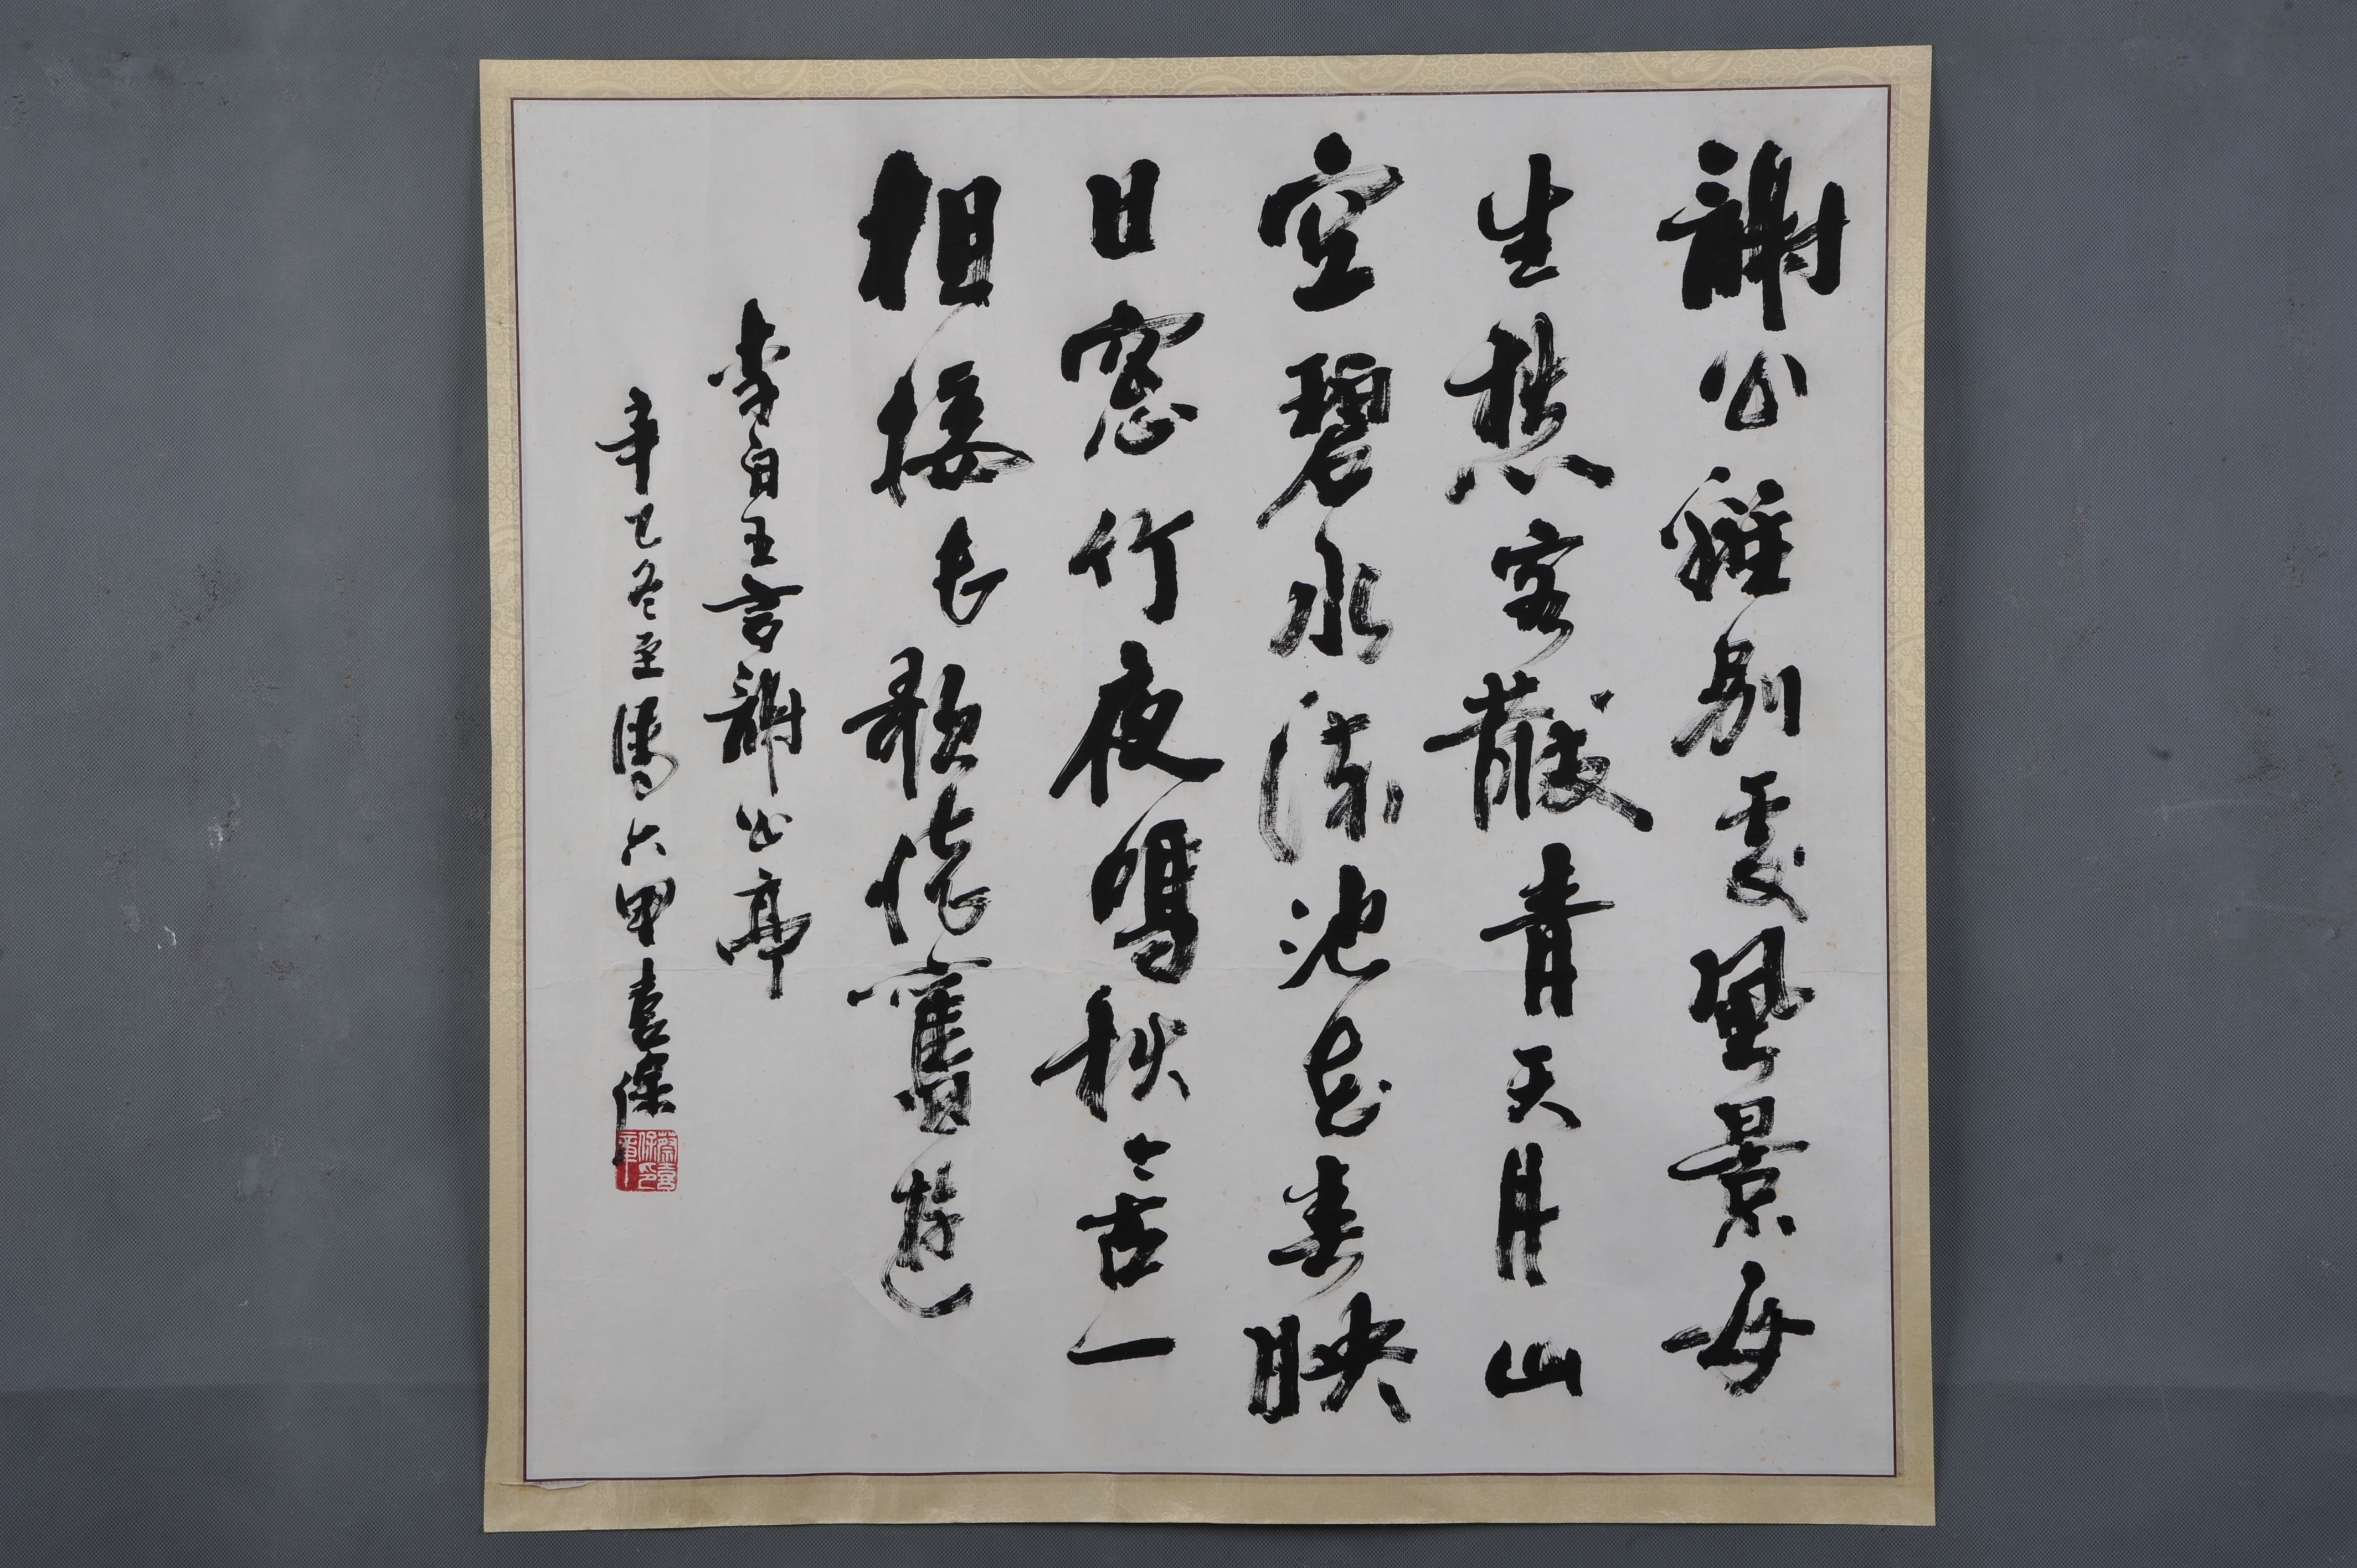 謝公離別處風景每
生愁客散青天月山
空碧水流池花春映
日窓竹夜鳴秋今古一
相接長歌懷舊遊
李白五言謝公亭
辛巳冬至六甲喜保
蔡喜保印章